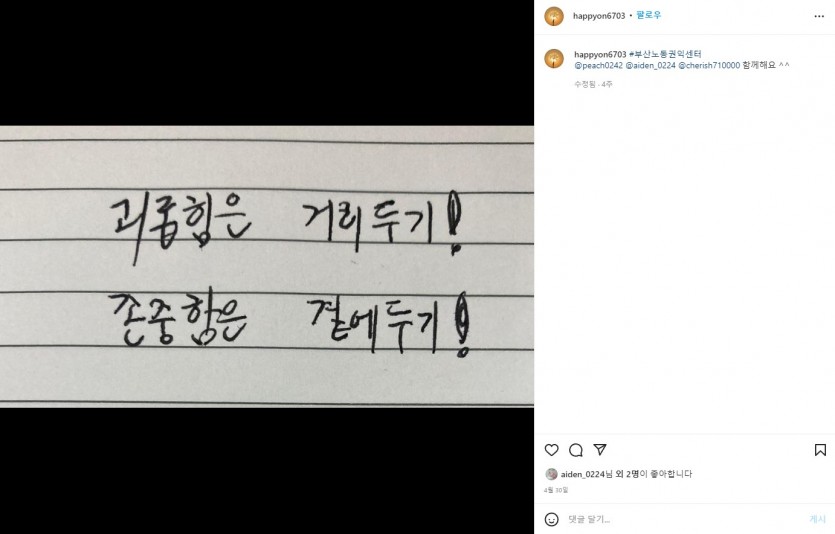 괴롭힘은 거리두기!
존중함은 곁에두기!
happyon6703 • 팔로우
happyon6703 #부산노동권익센터
@peach0242 @aiden_0224 @cherish710000 함께해요 ^^
수정됨 · 4주
aiden_0224님 외 2명이 좋아합니다
4월 30일
댓글 달기...
게시